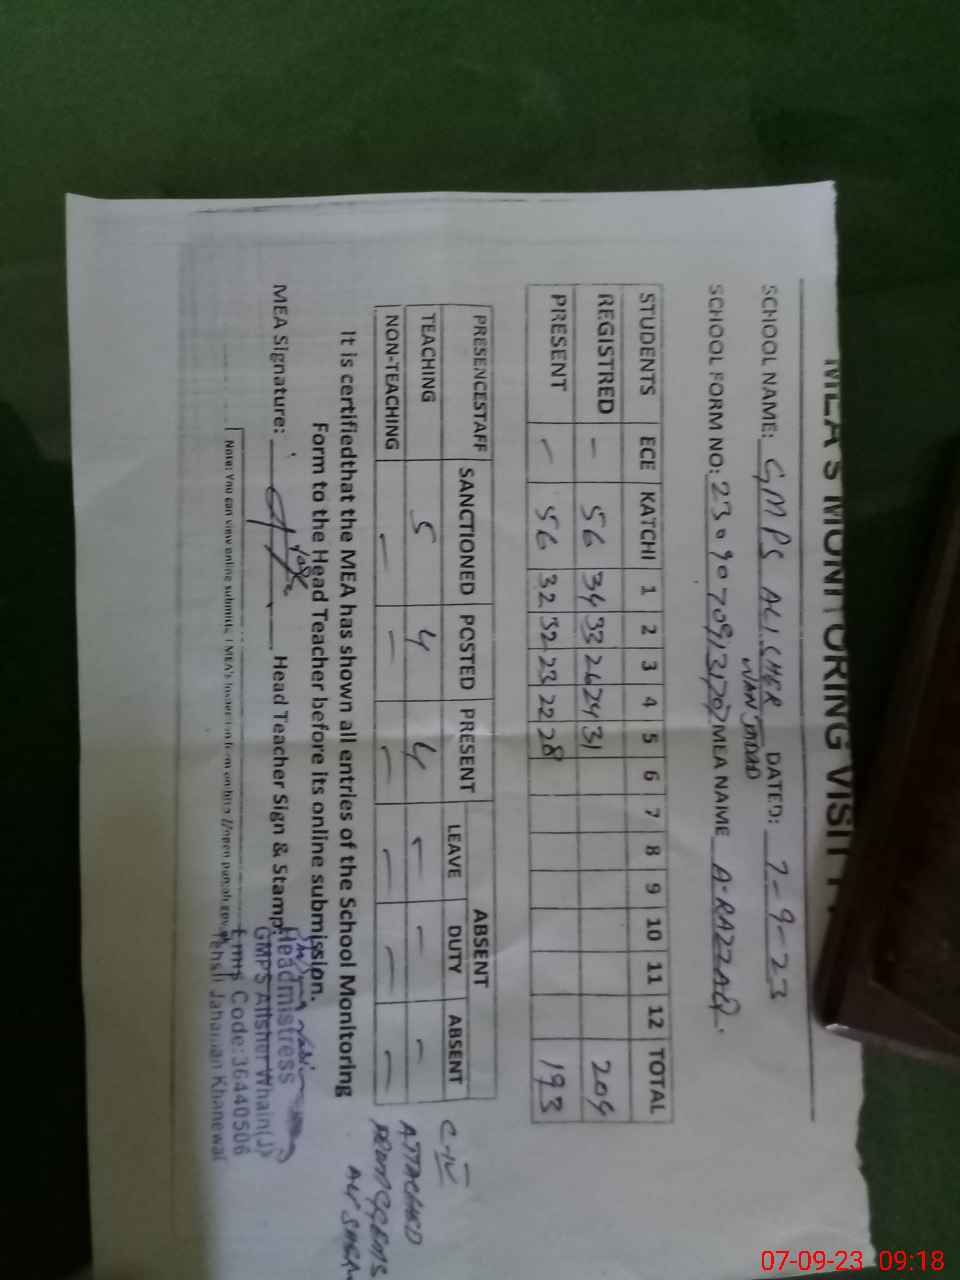 MEA'S MONITORING VISIT
SCHOOL NAME: GMPS ALISHER DATED: 7-9-23
VAN
SCHOOL FORM NO: 2309070913707 MEA NAME A-RAZZAQ.
STUDENTS ECE KATCHI 1 2 3 4 5 6 7 8 9 10 11 12 TOTAL
REGISTRED - 56 34 33 26 24 31 204
PRESENT - 56 32 32 23 22 28 193
PRESENCESTAFF SANCTIONED POSTED PRESENT ABSENT
LEAVE DUTY ABSENT
TEACHING 5 4 4 - - -
NON-TEACHING - - - - - -
C-IV
ATTACHED
FROM GGEMS
ALI SHER
It is certifiedthat the MEA has shown all entries of the School Monitoring
Form to the Head Teacher before its online submission.
MEA Signature: Head Teacher Sign & Stamp
Headmistress
GMPS Alisher Whain(J)
Emis Code:36440506
Tehsil Jahanian Khanewal
Note: You can view online submitted MEA's
07-09-23 09:18